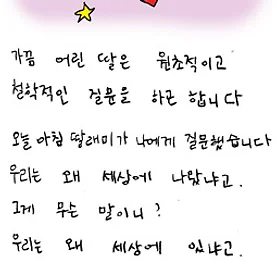 가끔 어린 딸은 원초적이고
철학적인 질문을 하곤 합니다
오늘 아침 딸래미가 나에게 질문했습니다
우리는 왜 세상에 나왔냐고.
그게 무슨 말이니?
우리는 왜 세상에 있냐고.